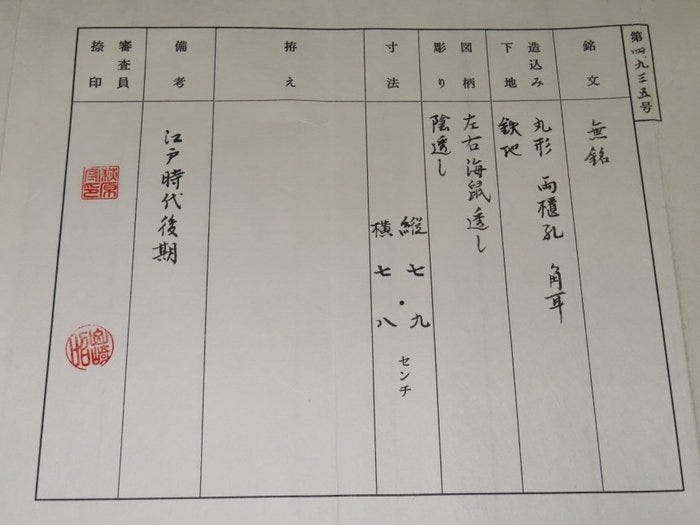 第四九三五号
銘文
無銘
造込み
下地
丸形 両櫃孔 角耳
鉄地
図柄
彫り
左右海鼠透し
陰透し
寸法
縦 七・九
横 七 八
センチ
拵え
備考
江戸時代後期
審査員
捺印